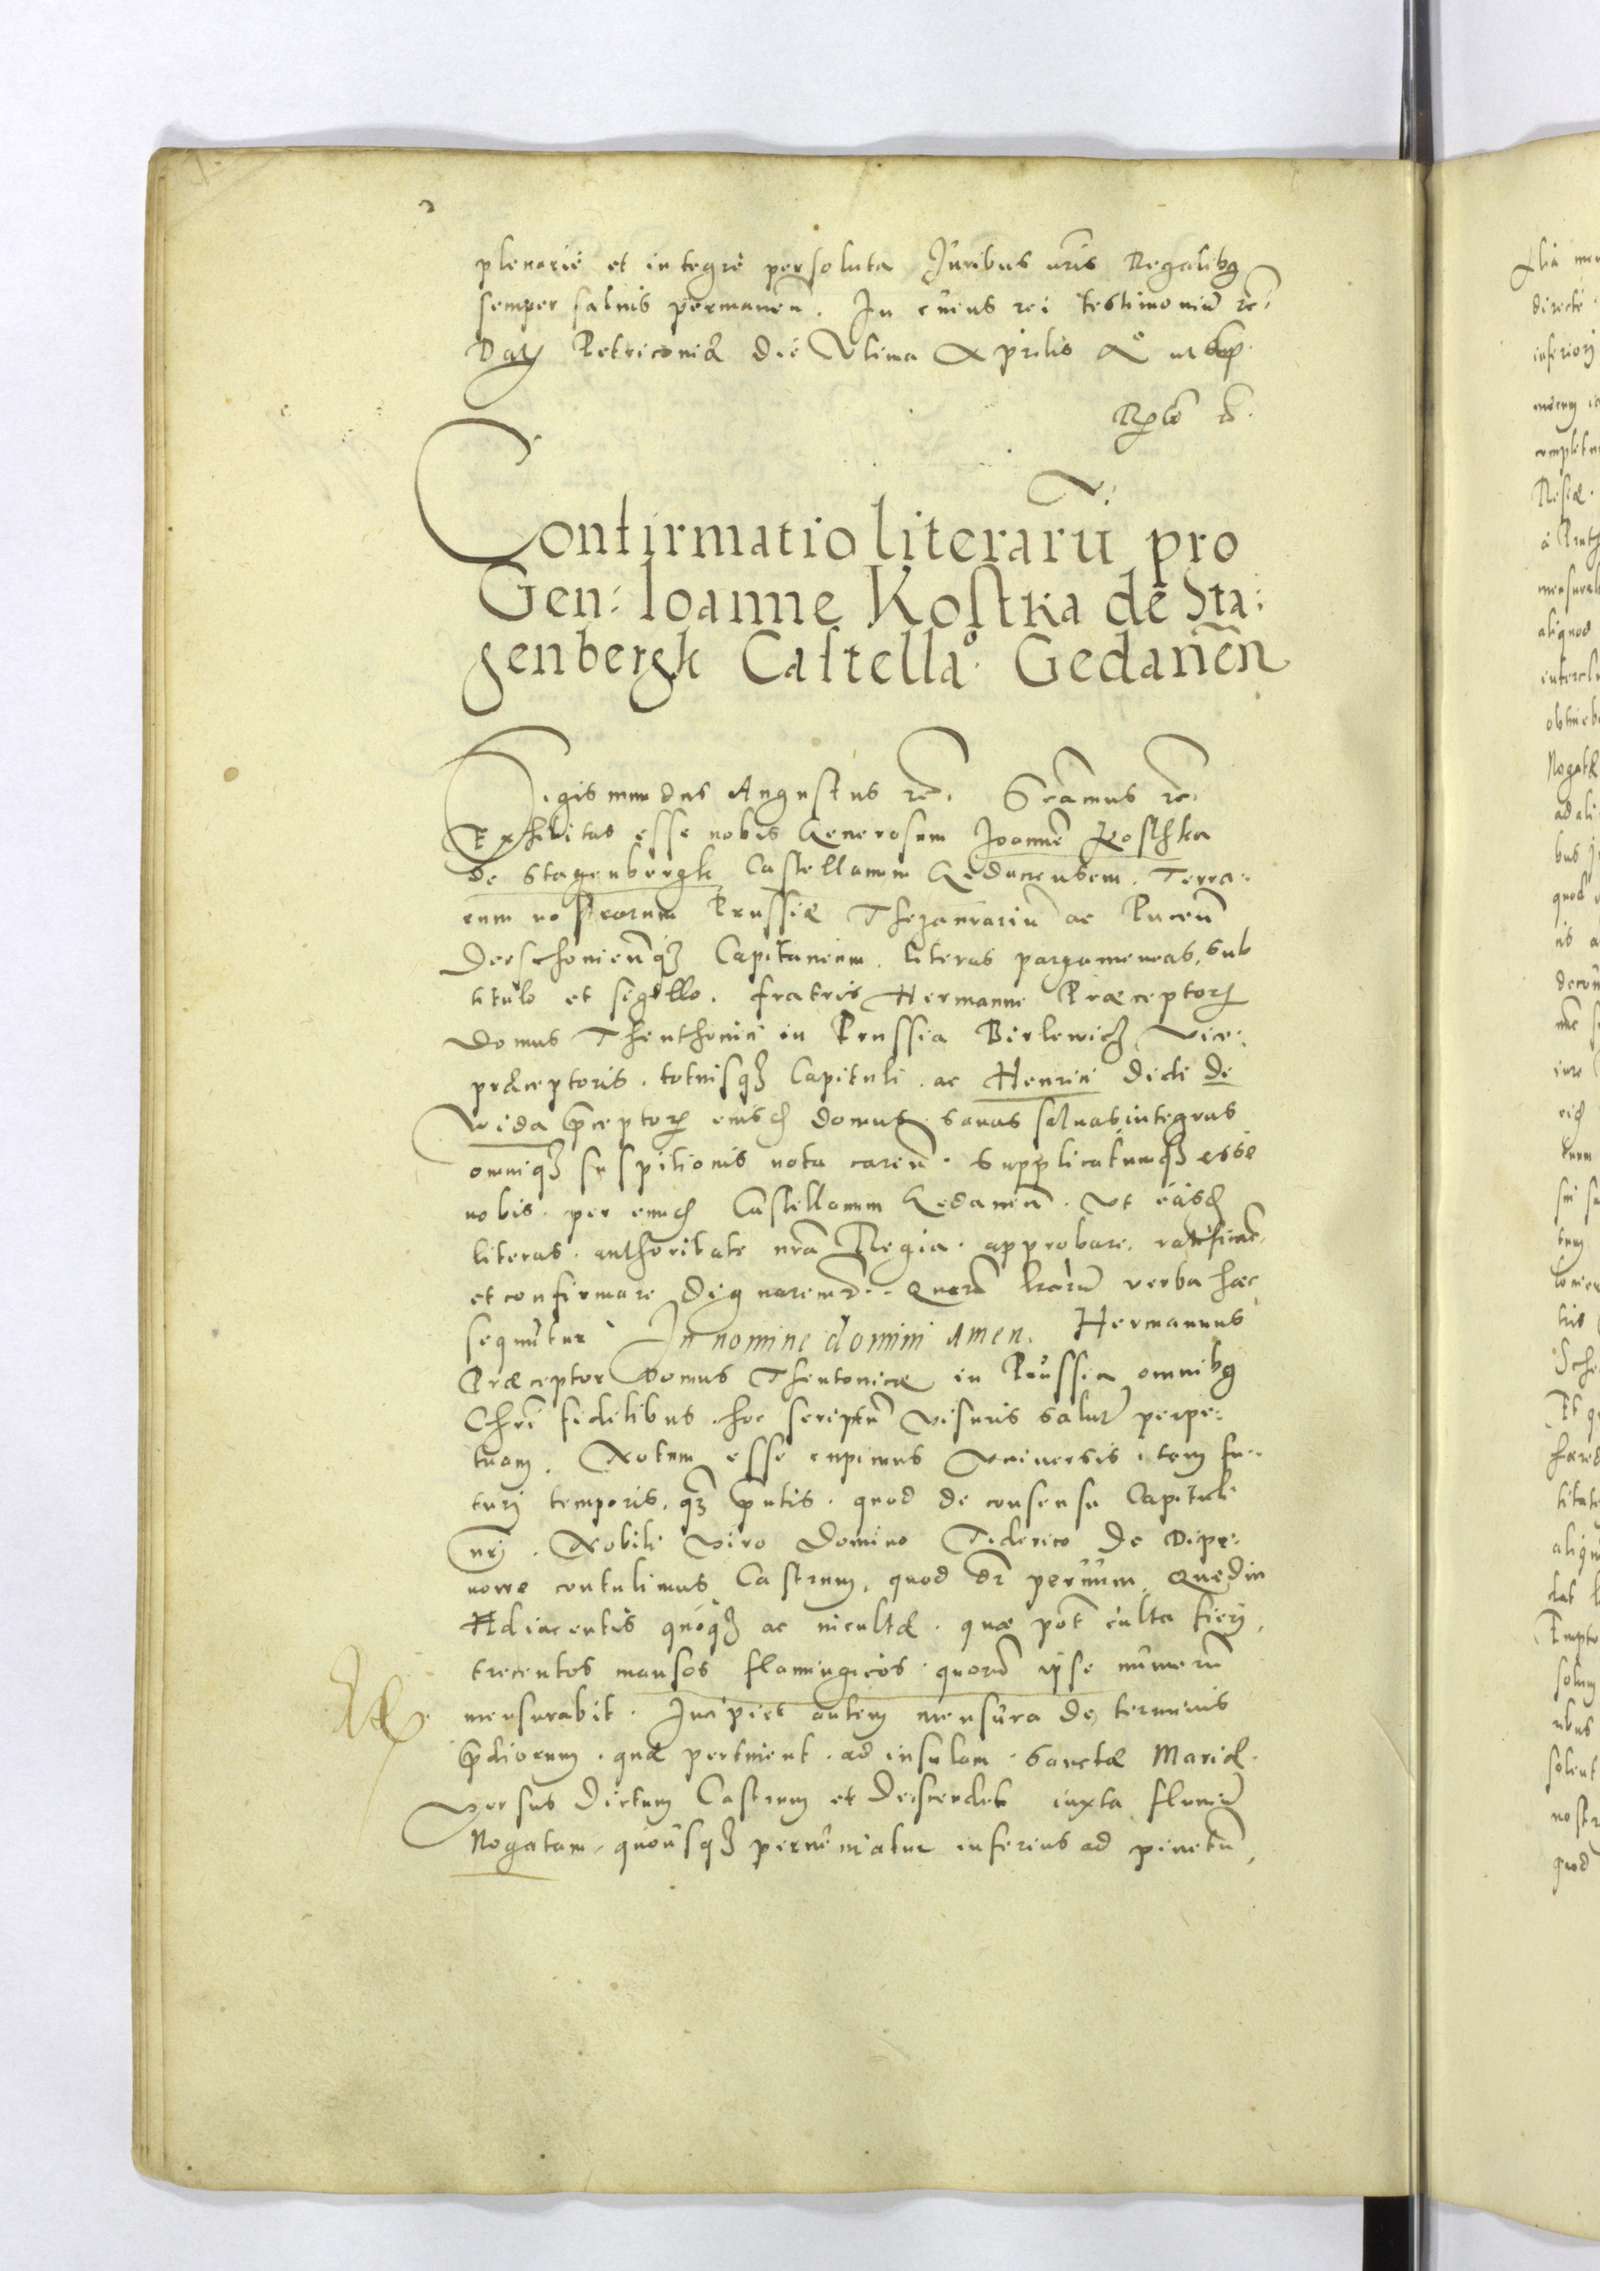 plenarie et integre persoluta Juribus nris Regalibq
semper saluis permanen. In cuius rei testimoniu rc.
Datj Petricouiæ die Vltima Aprilis Ao ut sup.
Confirmatio literarū pro
Gen: Ioanne Kostka de Sta:
genbergk Castellao. Gedanēn
Sigismundus Augustus rc. Scamus rc.
Exhibitas esse nobis Generosum Joanne Kosthka
de Stagenbergk Castellanum Gedanensem. Terra-
rum nostrarum Prussiæ Thezaurariu ac Pucen
Derschouienqz Capitaneum. literas pargameneas, sub
titulo et sigillo. fratris Hermanni Præceptorj
domus Theuthonici in Prussia Birlewicz Vice:
præceptoris. totiusqz Capituli. ac Henrici Dicti de
Wida pceptorj eiusd domus. sanas saluas integras
omniqz suspitionis nota caren. Supplicatumqz esse
nobis. per eund Castellanum Gedanen. Vt easd
literas. authoritate nra Regia. approbare. ratificare.
et confirmare dignaremur. Quaru lraru verba hæc
sequutur In nomine domini Amen. Hermannus
Præceptor Domus Theutonicæ in Prussia omnibq
Chri fidelibus. hoc scriptu visuris salute perpe:
tuam. Notum esse cupimus Vniuersis. tam fu-
turj temporis, qz pntis. quod de consensu Capituli
nrj. Nobili viro Domino Tiderico De Dipe:
nowe contulimus Castrum, quod dr paruum Quedin
Adiacentis quoqz ac incultæ. quæ pot culta fierj,
trecentos mansos flamingicos. quoru ipse numeru
mensurabit. Incipiet autem mensura de terminis
prdiorum. quæ pertinent. ad insulam. Sanctæ Mariæ.
versus dictum Castrum et descendet iuxta flumen
Nogatam, quousqz perueniatur inferius ad pinetu,